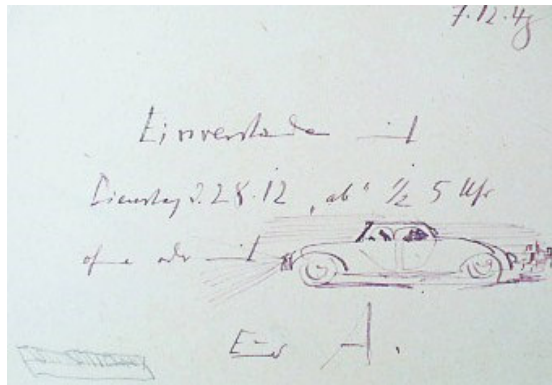 7.12.48
Einverstanden mit
Dienstag d. 28.12 „ab“ ½ 5 Uhr
ohne oder mit
A.